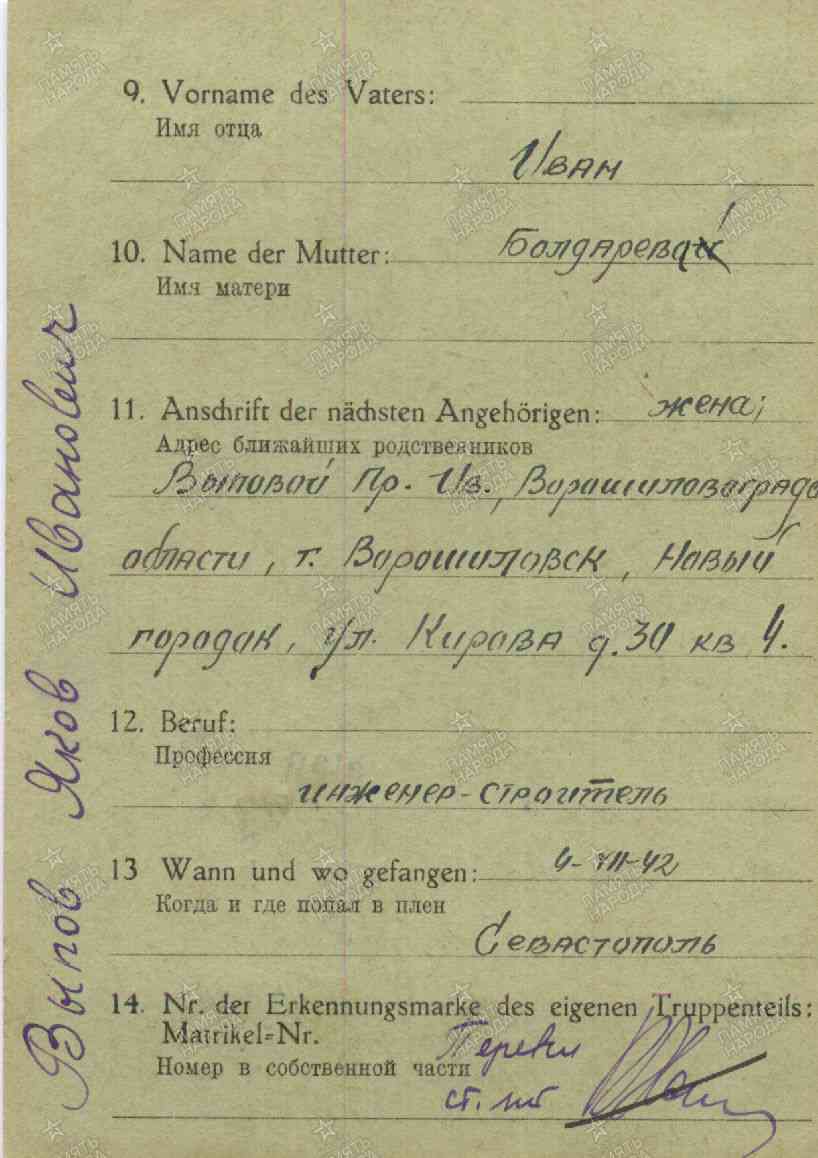 9. Vorname des Vaters:
Имя отца
Иван
10. Name der Mutter: Болдарева
Имя матери
11. Anschrift der nächsten Angehörigen: жена;
Адрес ближайших родственников
Выповой Пр. Ив., Ворошиловоградс
области, г. Ворошиловск, Новый
городок, ул. Кирова д. 30 кв 4.
12. Beruf:
Профессия
инженер-строитель
13 Wann und wo gefangen: 4-VII-42
Когда и где попал в плен
Севастополь
14. Nr. der Erkennungsmarke des eigenen Truppenteils:
Matrikel-Nr.
Номер в собственной части
Перевёл
ст. л-т
Выпов Яков Иванович
ПАМЯТЬ НАРОДА